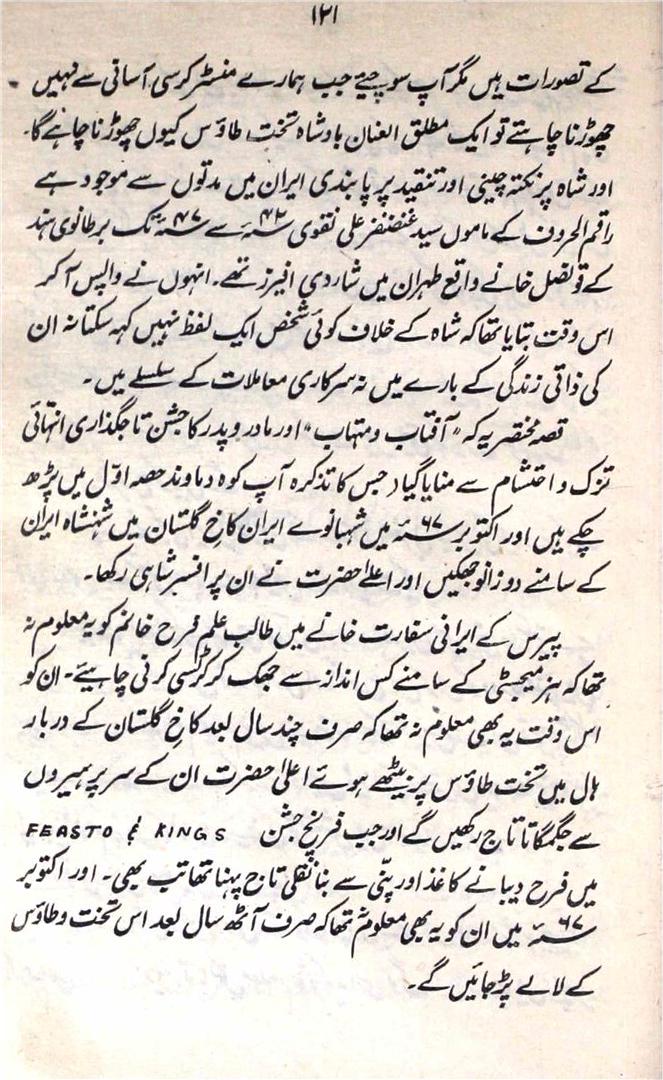 ۱۲۱
کے تصورات ہیں مگر آپ سوچیے جب ہمارے منسٹر کرسی آسانی سے نہیں
چھوڑنا چاہتے تو ایک مطلق العنان بادشاہ تخت طاؤس کیوں چھوڑنا چاہے گا۔
اور شاہ پر نکتہ چینی اور تنقید پر پابندی ایران میں مدتوں سے موجود ہے
راقم الحروف کے ماموں سید غضنفر علی نقوی ۴۲ء سے ۴۷ء تک برطانوی ہند
کے قونصل خانے واقع طہران میں شاردی افیرز تھے۔ انہوں نے واپس آ کر
اس وقت بتایا تھا کہ شاہ کے خلاف کوئی شخص ایک لفظ نہیں کہہ سکتا نہ ان
کی ذاتی زندگی کے بارے میں نہ سرکاری معاملات کے سلسلے میں۔
قصہ مختصر یہ کہ "آفتاب و متہاب" اور مادر و پدر کا جشن تاجگذاری انتہائی
تزک و احتشام سے منایا گیا (جس کا تذکرہ آپ کوہ دماوند حصہ اوّل میں پڑھ
چکے ہیں اور اکتوبر ۶۷ء میں شہبانوے ایران کاخِ گلستان میں شہنشاہ ایران
کے سامنے دو زانو جھکیں اور اعلےٰ حضرت نے ان پر افسر شاہی رکھا۔
پیرس کے ایرانی سفارت خانے میں طالب علم فرح خانم کو یہ معلوم نہ
تھا کہ ہز میجسٹی کے سامنے کس انداز سے جھک کر کرٹسی کرنی چاہیئے۔ ان کو
اس وقت یہ بھی معلوم نہ تھا کہ صرف چند سال بعد کاخِ گلستان کے دربار
ہال میں تخت طاؤس پر بیٹھے ہوئے اعلیٰ حضرت ان کے سر پر ہیروں
سے جگمگاتا تاج رکھیں گے اور جب فرنچ جشن FEASTO & KINGS
میں فرح دیبا نے کاغذ اور پنّی سے بنا نقلی تاج پہنا تھا تب بھی۔ اور اکتوبر
۶۷ء میں ان کو یہ بھی معلوم نہ تھا کہ صرف آٹھ سال بعد اس تخت و طاؤس
کے لالے پڑ جائیں گے۔